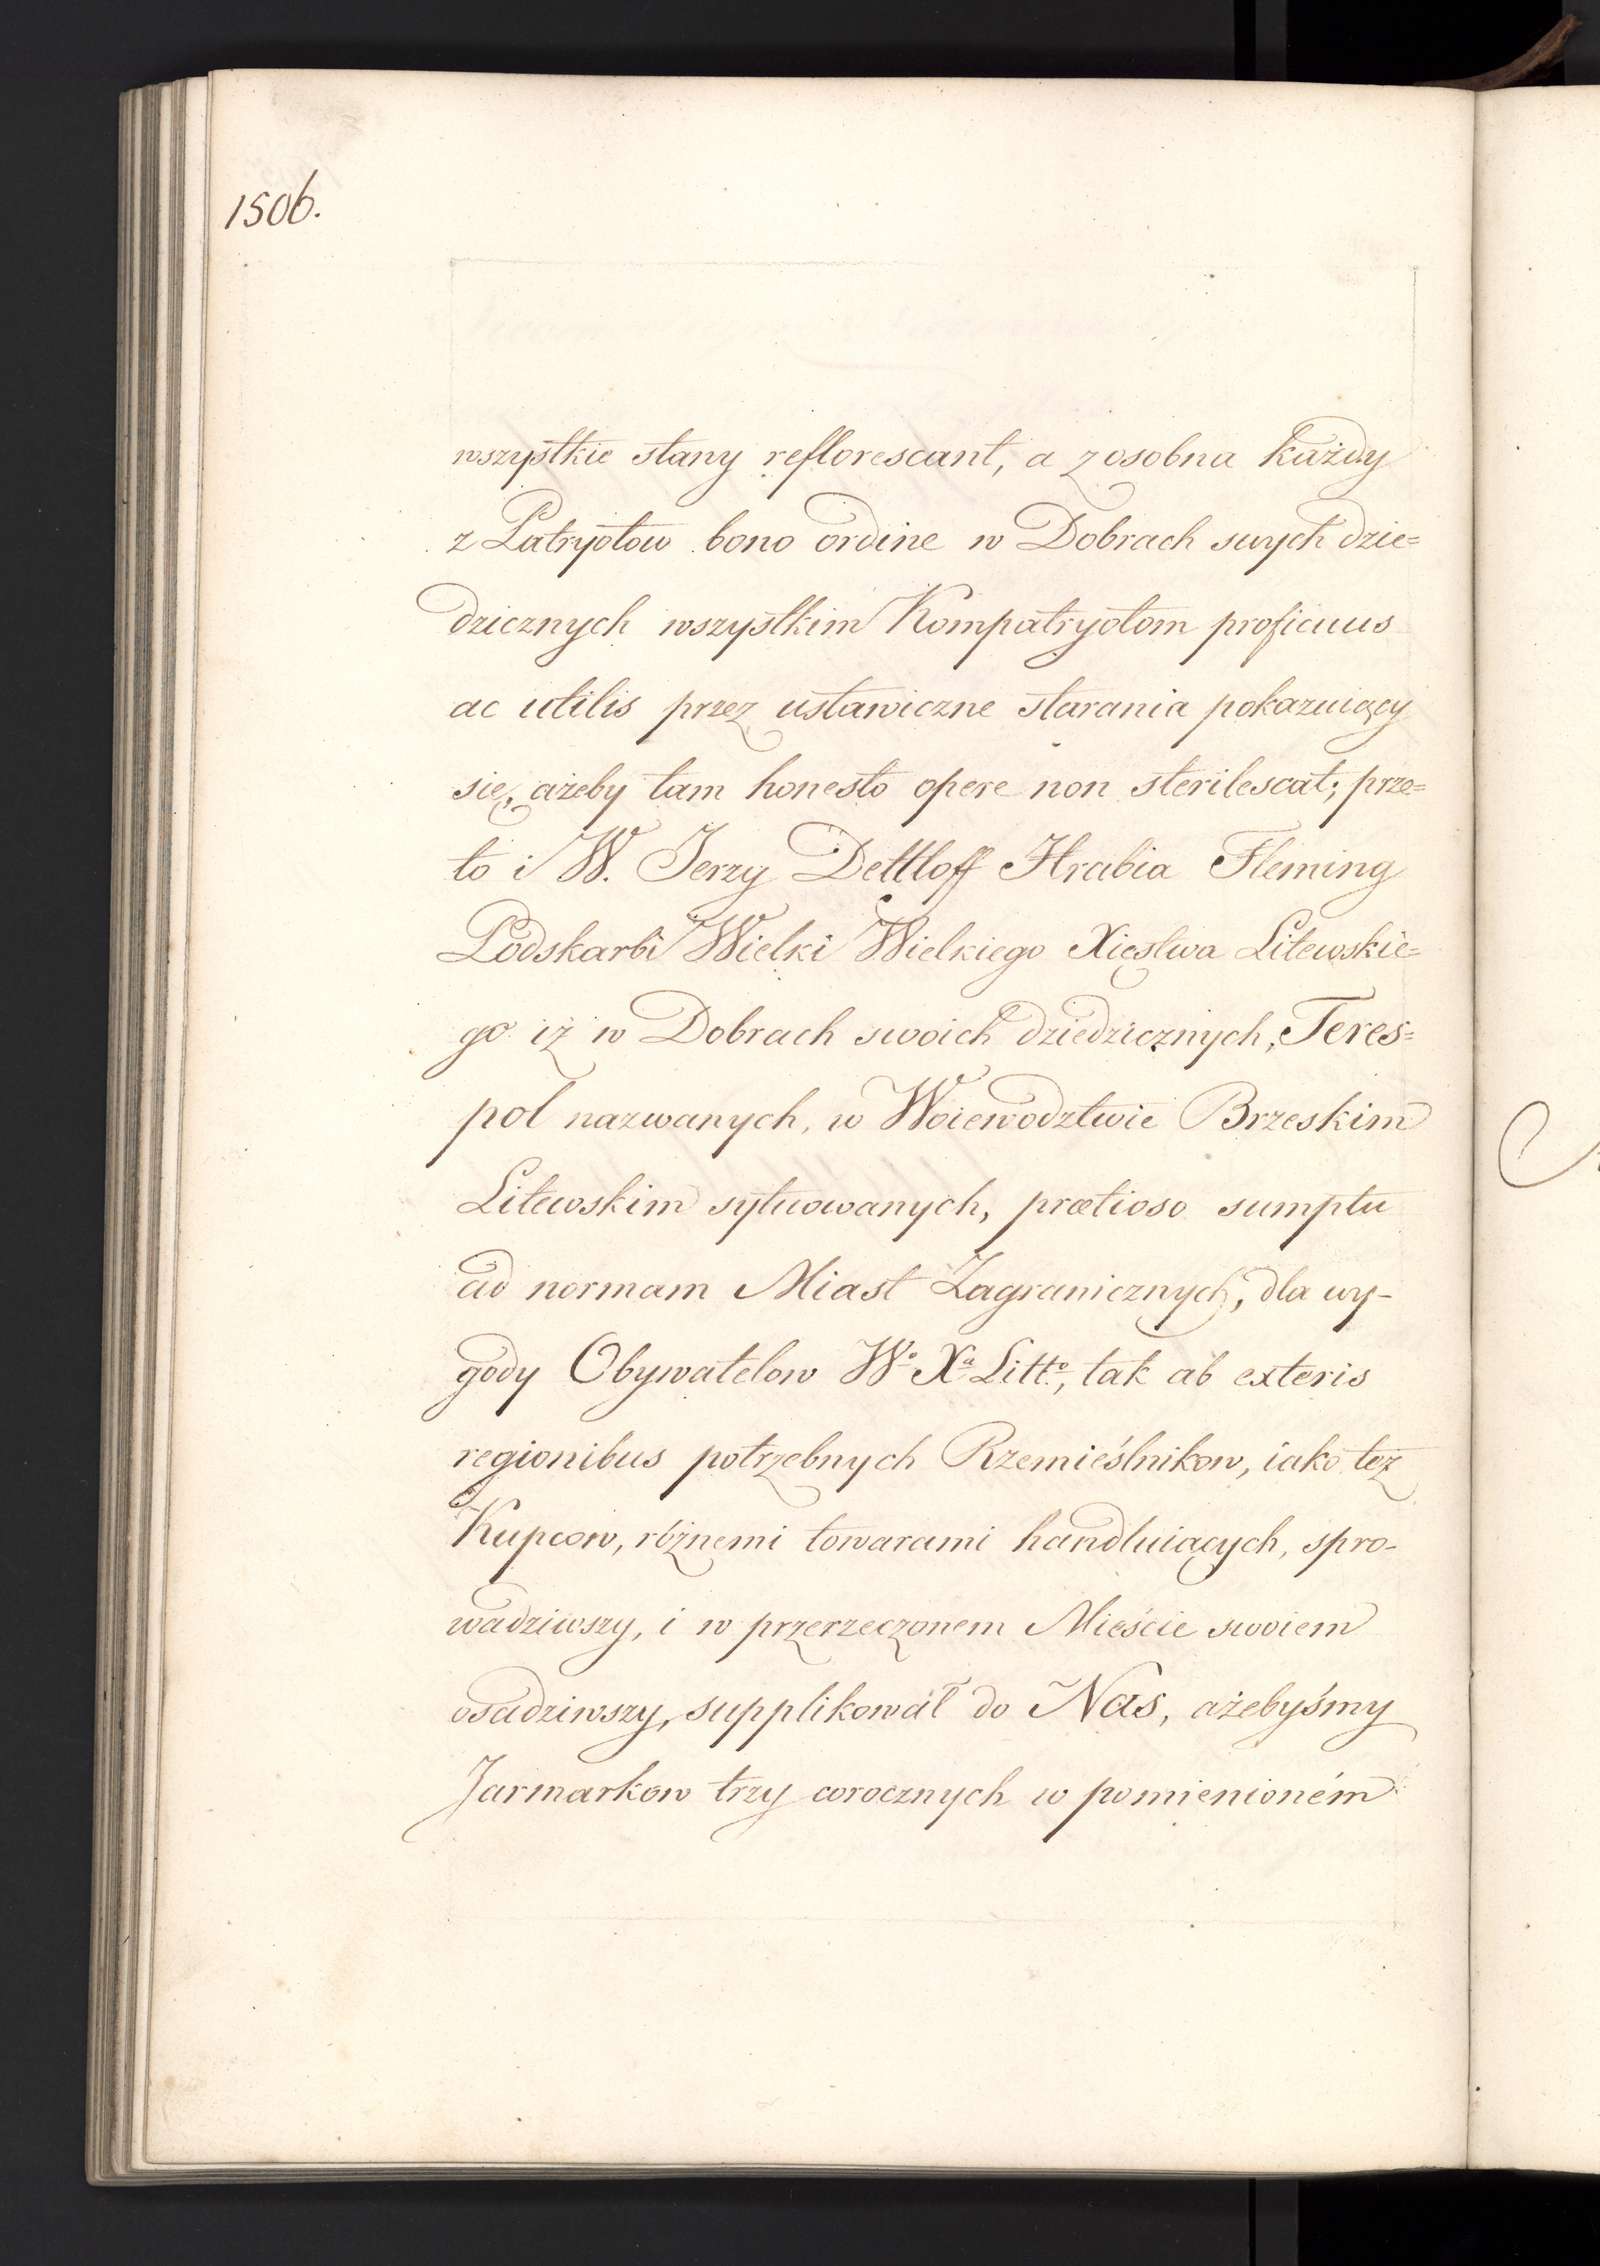 1506.
wszystkie stany reflorescant, a zosobna każdy
z Patryotow bono ordine w Dobrach swych dzie=
dzicznych wszystkim Kompatryotom proficuus
ac utilis przez ustawiczne starania pokazuiący
się, ażeby tam honesto opere non sterilescat; prze=
to i W. Jerzy Dettloff Hrabia Fleming
Podskarbi Wielki Wielkiego Xięstwa Litewskie=
go iż w Dobrach swoich dziedzicznych, Teres=
pol nazwanych, w Woiewodztwie Brzeskim
Litewskim sytuowanych, prætioso sumptu
ad normam Miast Zagranicznych, dla wy-
gody Obywatelow Wº Xª Littº, tak ab exteris
regionibus potrzebnych Rzemieślnikow, iako też
Kupcow, różnemi towarami handluiących, spro-
wadziwszy, i w przerzeczonem Mieście swoiem
osadziwszy, supplikował do Nas, ażebyśmy
Jarmarkow trzy corocznych w pomienioném